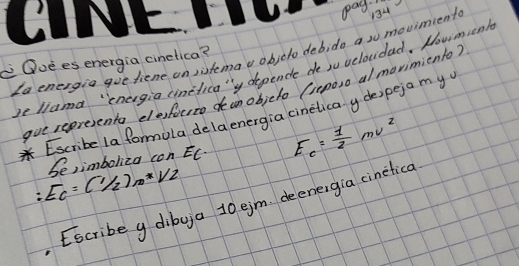 CINETICA
pag. 134
¿Qué es energía cinetica?
La energia que tiene un sistema u objeto debido a su movimiento
se llama "energia cinética" y depende de su velocidad. Movimiento
que representa el esfuerzo de un objeto (reposo al movimiento).
* Escribe la formula de la energia cinética y despeja m y v
Se simboliza con Ec.
: Ec = (1/2) m * V2
Ec = 1/2 mv²
. Escribe y dibuja 10 ejm. de energia cinética